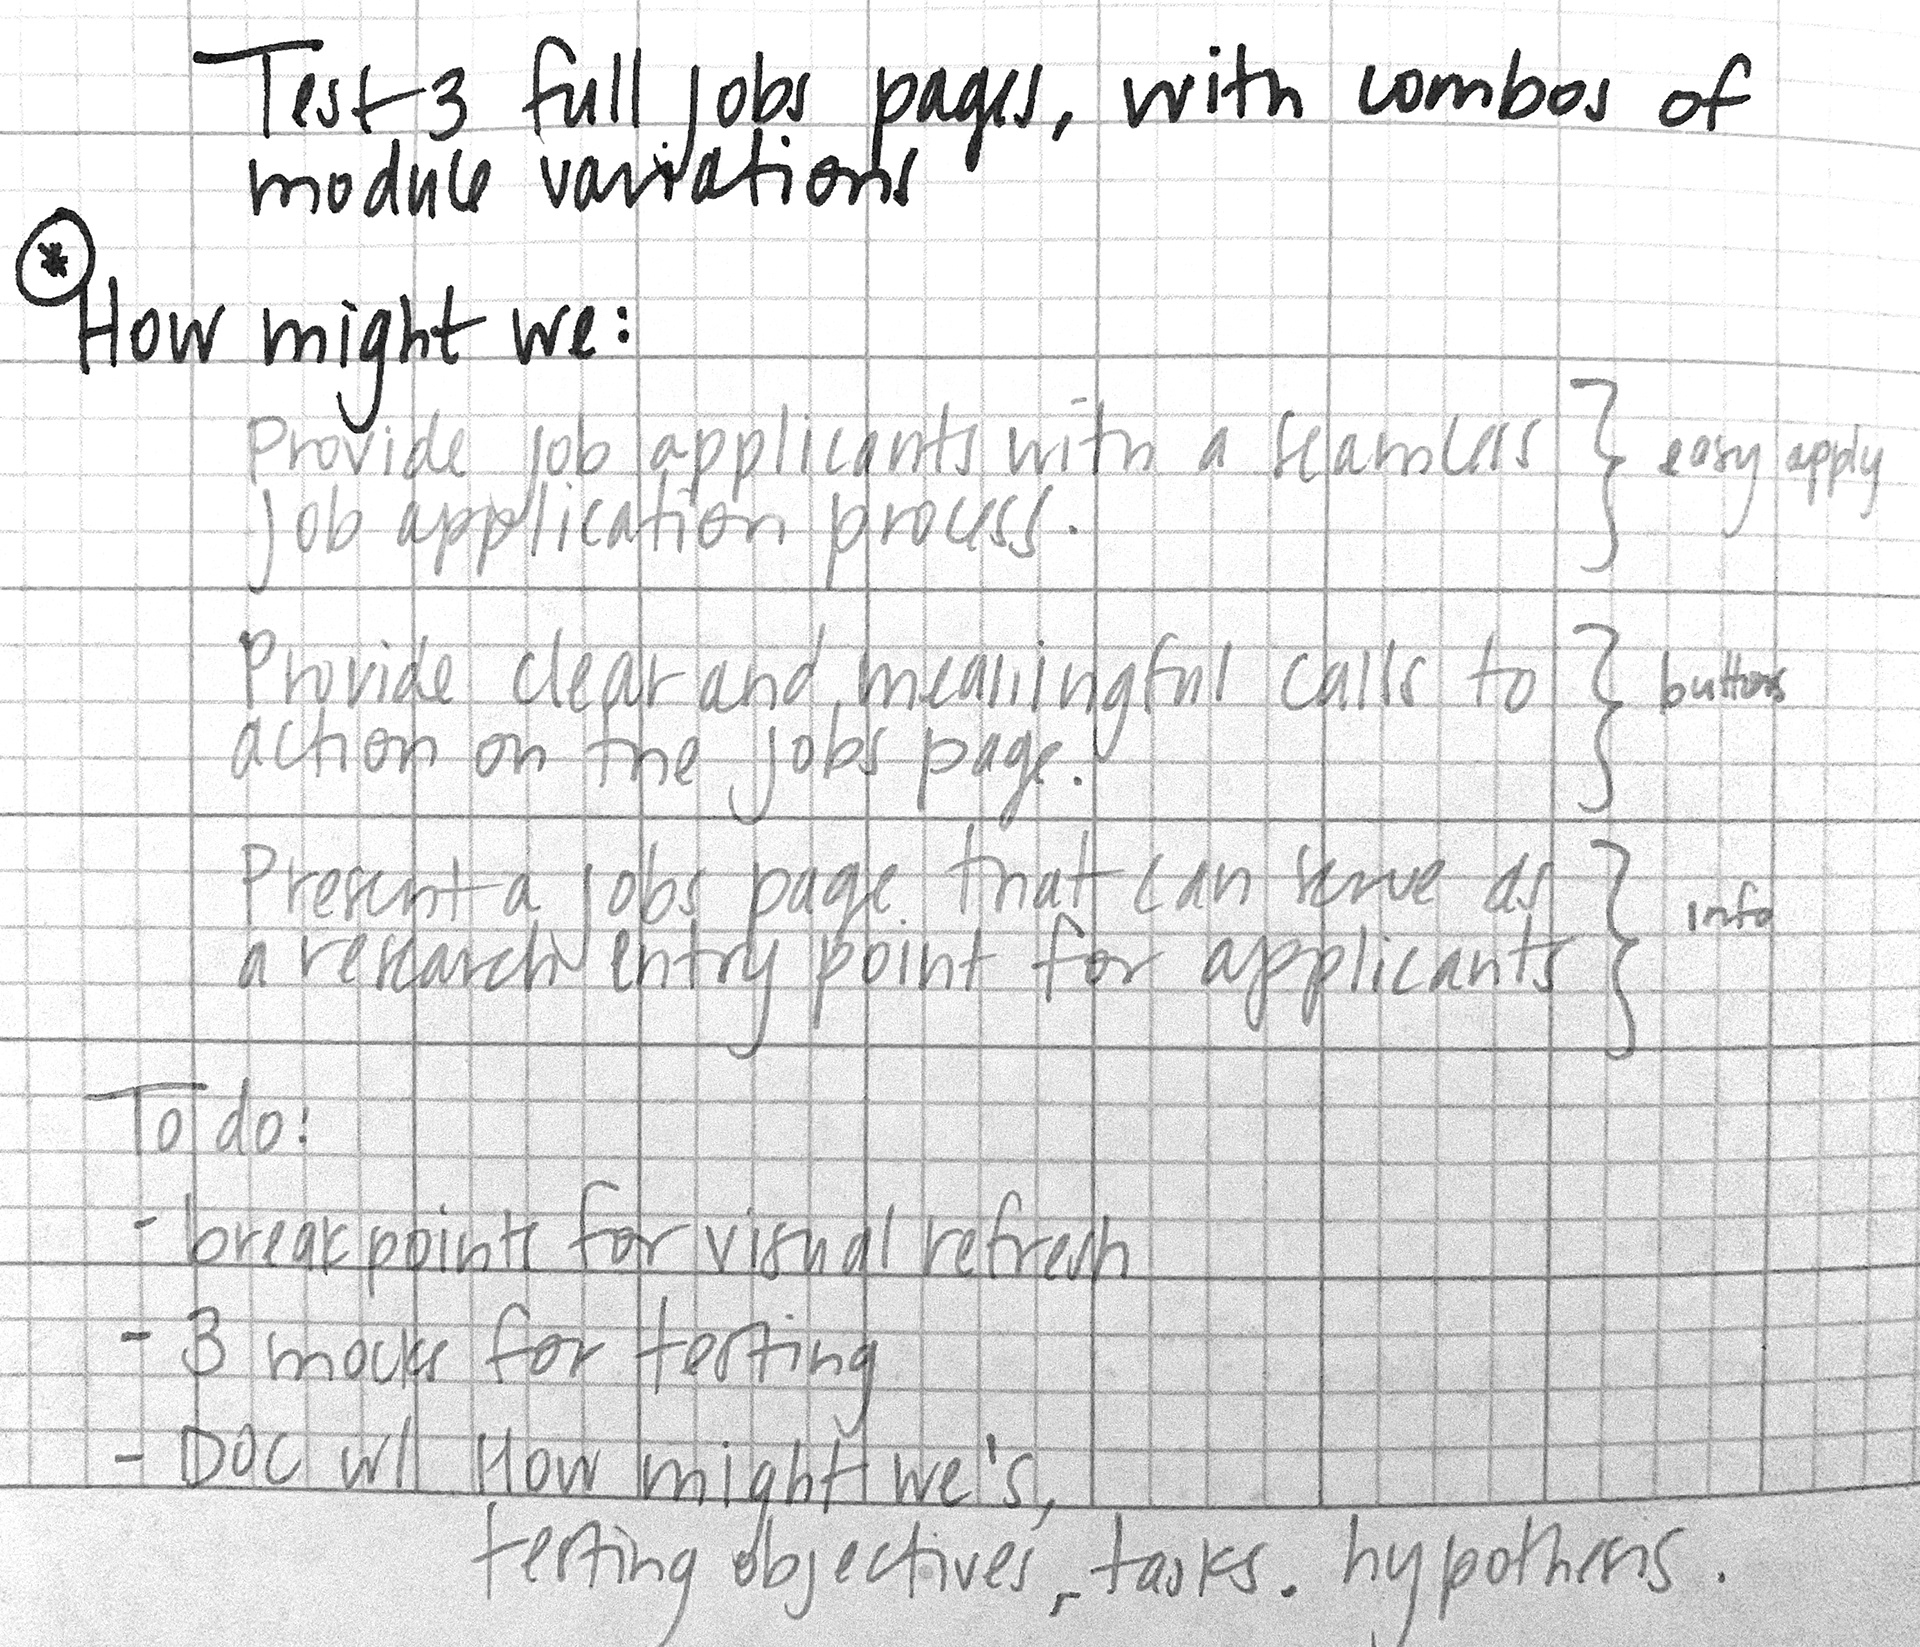 Test 3 full jobs pages, with combos of
module variations
*
How might we:
Provide job applicants with a seamless
job application process.
} easy apply
Provide clear and meaningful calls to
action on the jobs page.
} buttons
Present a jobs page that can serve as
a research entry point for applicants
} info
To do:
- breakpoints for visual refresh
- 3 mocks for testing
- DOC w/ How might we's,
testing objectives, tasks. hypothesis.